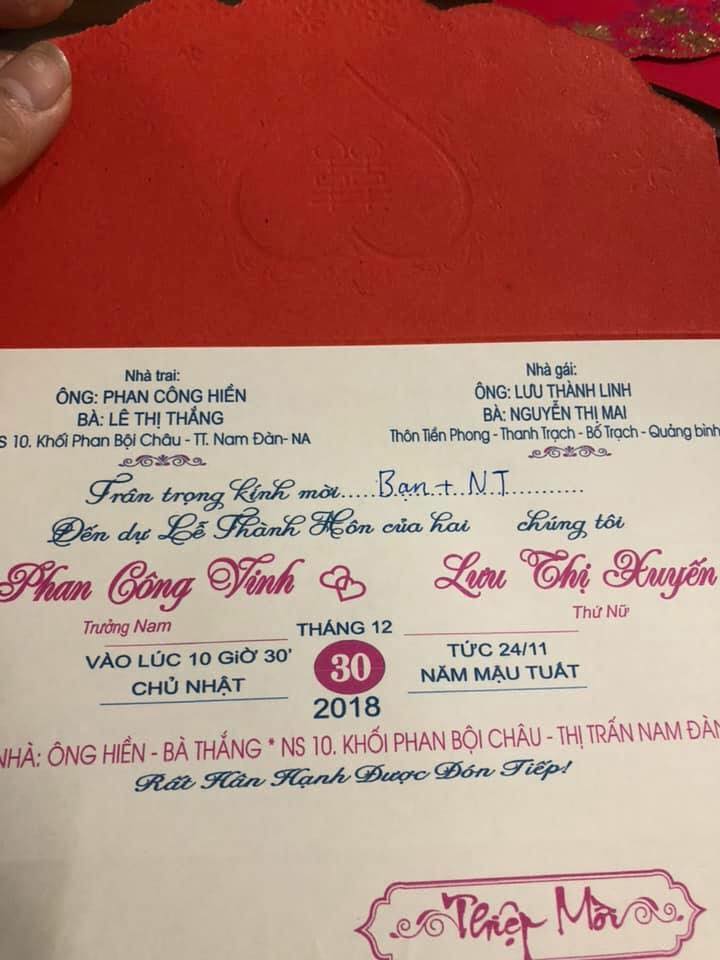 Nhà trai:
ÔNG: PHAN CÔNG HIỀN
BÀ: LÊ THỊ THẮNG
NS 10. Khối Phan Bội Châu - TT. Nam Đàn- NA
Nhà gái:
ÔNG: LƯU THÀNH LINH
BÀ: NGUYỄN THỊ MAI
Thôn Tiền Phong - Thanh Trạch - Bố Trạch - Quảng bình
Trân trọng kính mời.....Bạn + NT............
Đến dự Lễ Thành Hôn của hai chúng tôi
Phan Công Vinh
Trưởng Nam
Lưu Thị Xuyến
Thứ Nữ
VÀO LÚC 10 GIỜ 30'
CHỦ NHẬT
THÁNG 12
30
2018
TỨC 24/11
NĂM MẬU TUẤT
NHÀ: ÔNG HIỀN - BÀ THẮNG * NS 10. KHỐI PHAN BỘI CHÂU - THỊ TRẤN NAM ĐÀN
Rất Hân Hạnh Được Đón Tiếp!
Thiệp Mời